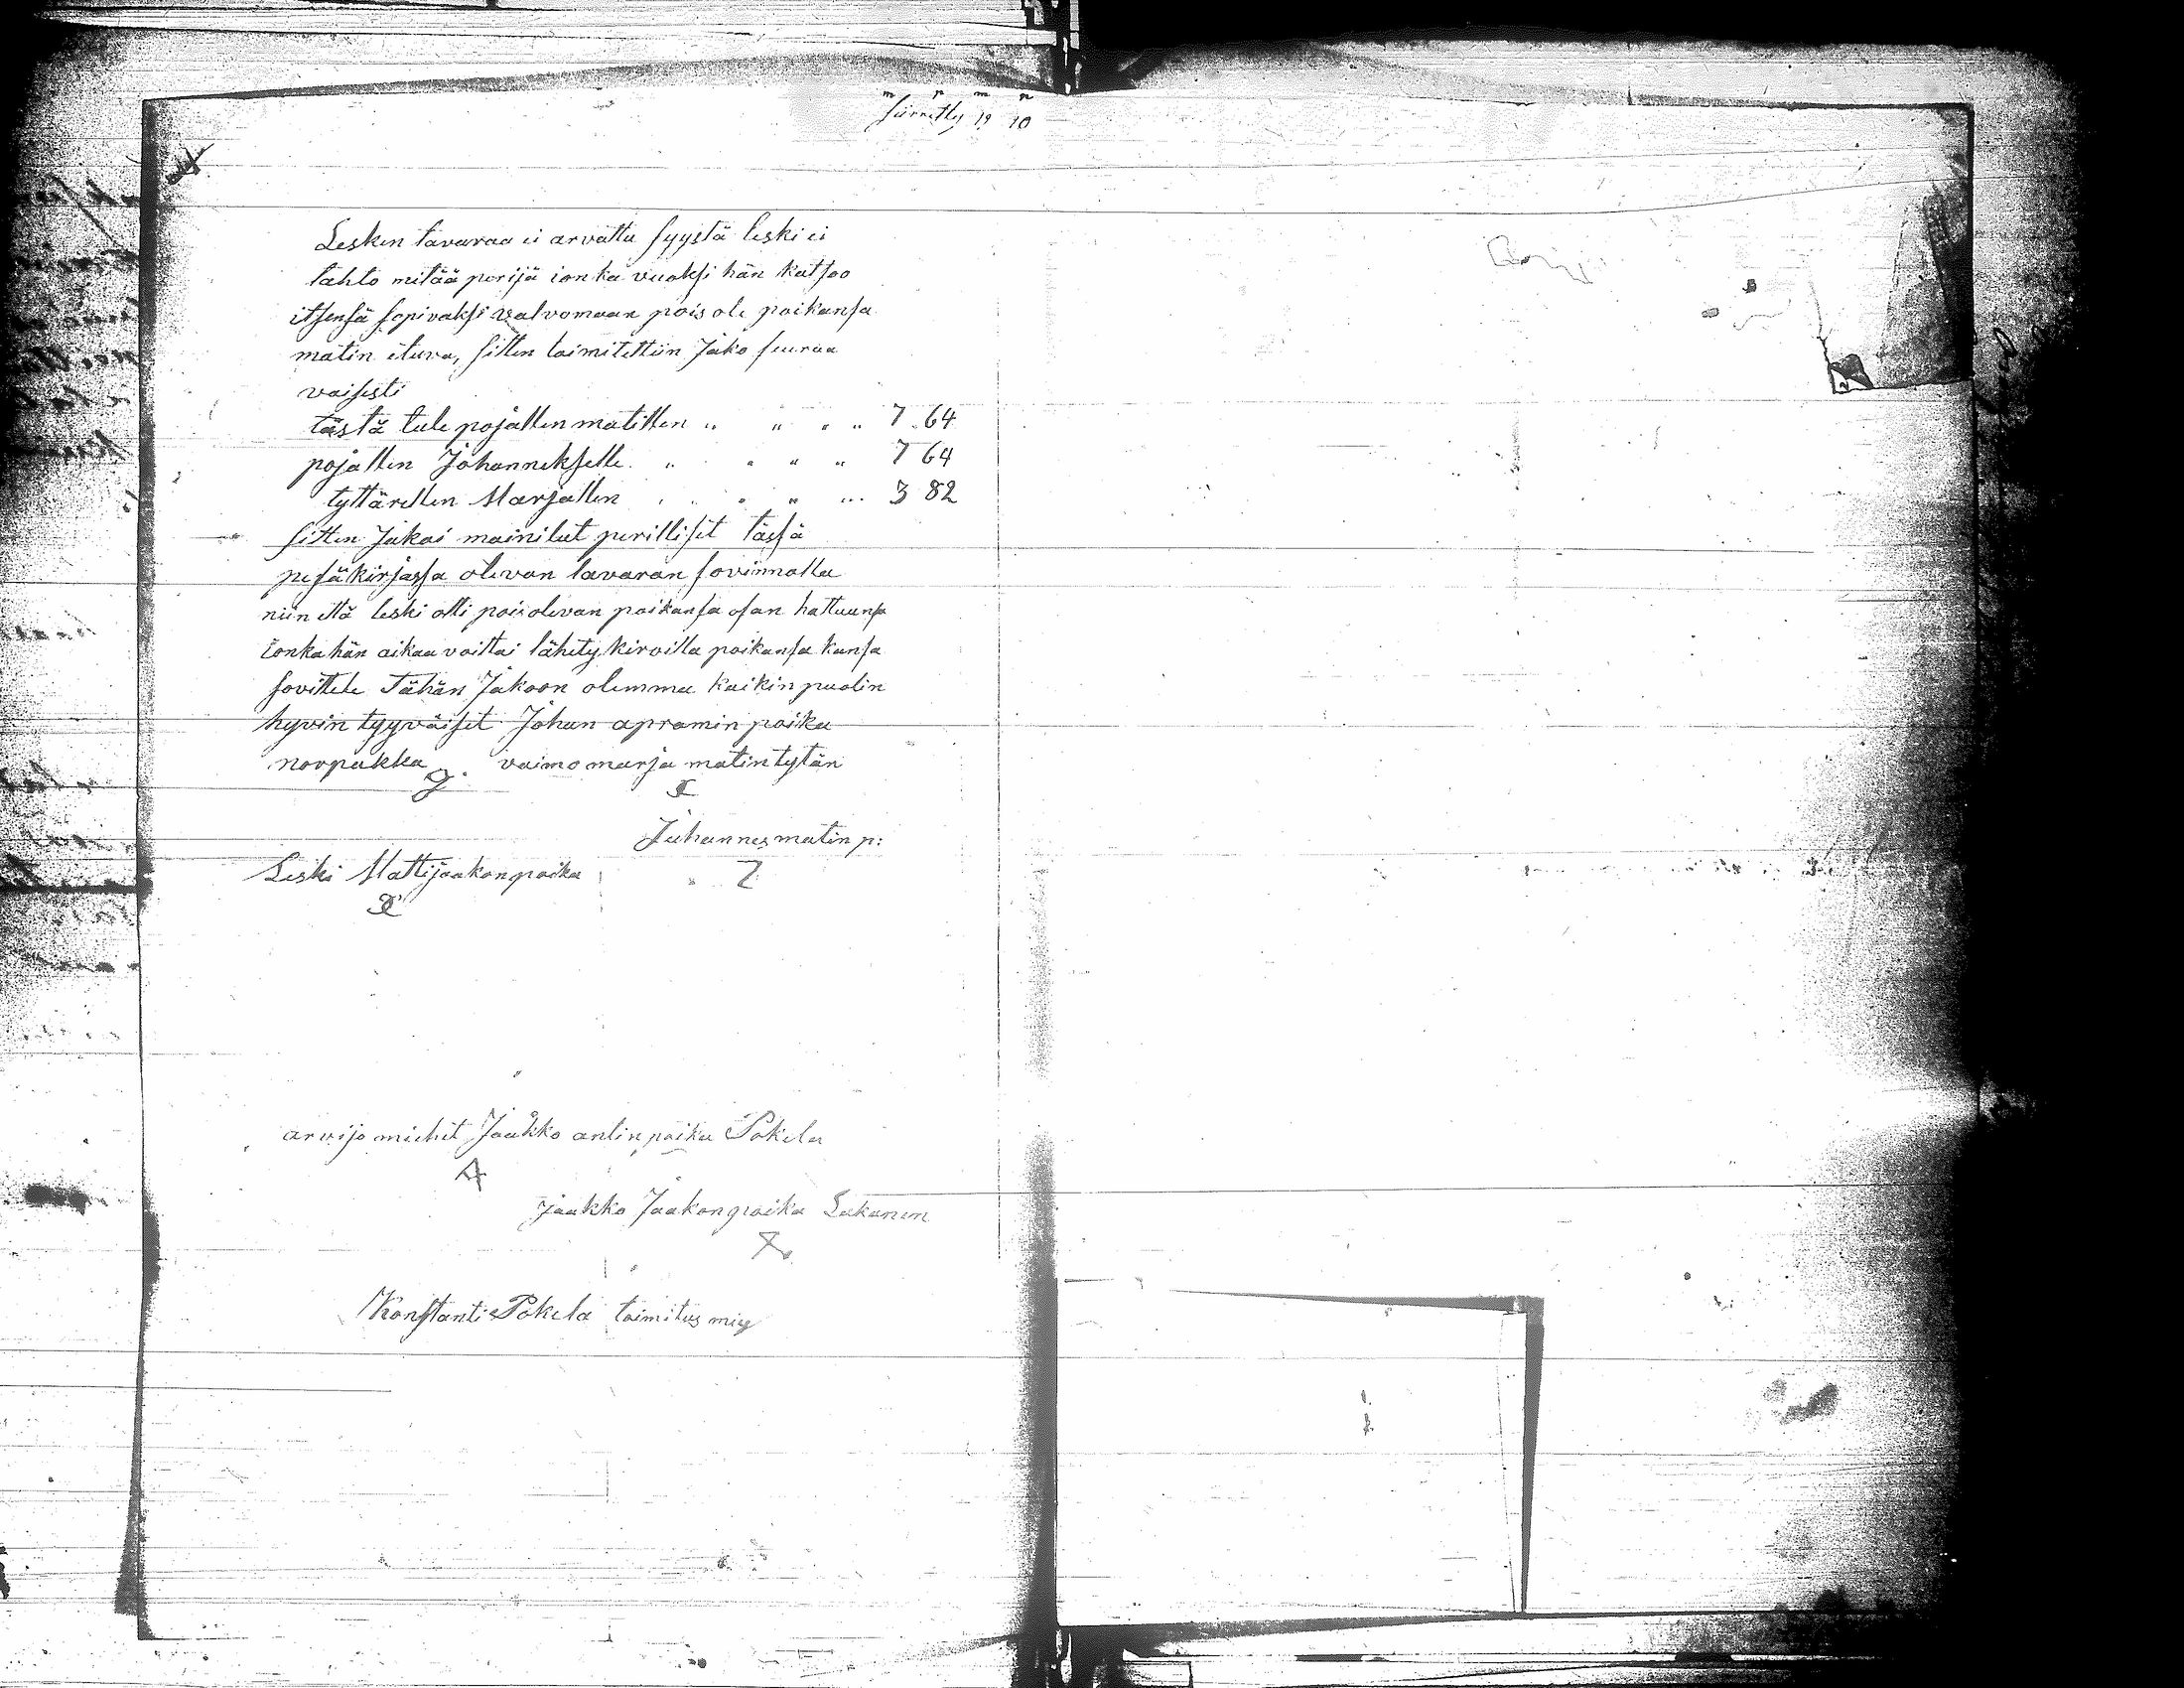 m p m p
siirretty 19 10
Lesken tavaraa ei arvattu syystä leski ei
tahto mitää perijä ionka vuoksi hän katsoo
itsensä sopivaksi valvomaan pois ole poikansa
matin etuva, sitten toimitettiin Jako seuraa
vaisesti
tästä tule pojallen matillen " " " " 7 64
pojallen Johannekselle. " " " " 7 64
tyttärellen Marjallen " " " ... 3 82
sitten Jakoi mainitut perilliset tässä
pesäkirjassa olevan tavaran sovinnolla
niin että leski otti poisolevan poikansa osan haltuunsa
ionka hän aikaa voittai lähity kirvoilla poikansa kansa
sovittele Tähän Jakoon olemma kaikin puolin
hyvin tyyväiset Johan apramin poika
norpakka vaimo marja matin tytän
Juhannes matin p:
Leski Matti jaakonpoika
arvijo miehet Jaakko antin poika Pokela
jaakko Jaakonpoika Lukanen
Konstanti Pokela toimitus mies